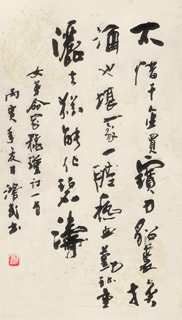 不惜千金買寶刀貂裘換
酒也堪豪一腔熱血勤珍重
灑去猶能化碧濤
女革命家秋瑾詩一首
丙寅年夏日